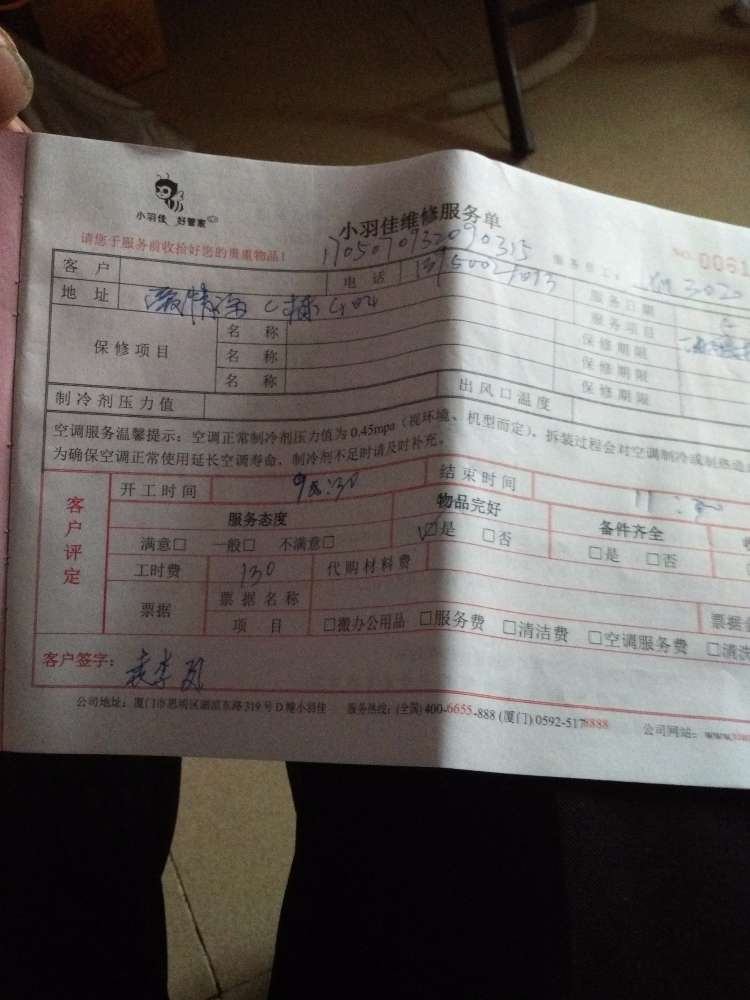 小羽佳 好管家
小羽佳维修服务单
请您于服务前收拾好您的贵重物品!
1705070932090315
服务员工:
NO. 0061
客 户
电 话
服务日期
地 址
C栋
服务项目
保修项目
名 称
保修期限
名 称
保修期限
名 称
保修期限
制冷剂压力值
出风口温度
空调服务温馨提示:空调正常制冷剂压力值为0.45mpa(视环境、机型而定),拆装过程会对空调制冷或制热造
为确保空调正常使用延长空调寿命,制冷剂不足时请及时补充。
客户评定
开工时间
结束时间
服务态度
物品完好
备件齐全
满意□ 一般□ 不满意□
☑是 □否
□是 □否
工时费 130 代购材料费
票据
票据名称
项 目
□搬办公用品 □服务费 □清洁费 □空调服务费 □清洗
客户签字:
公司地址:厦门市思明区湖滨东路319号D幢小羽佳 服务热线:(全国) 400-6655-888 (厦门) 0592-5178888 公司网站:www.